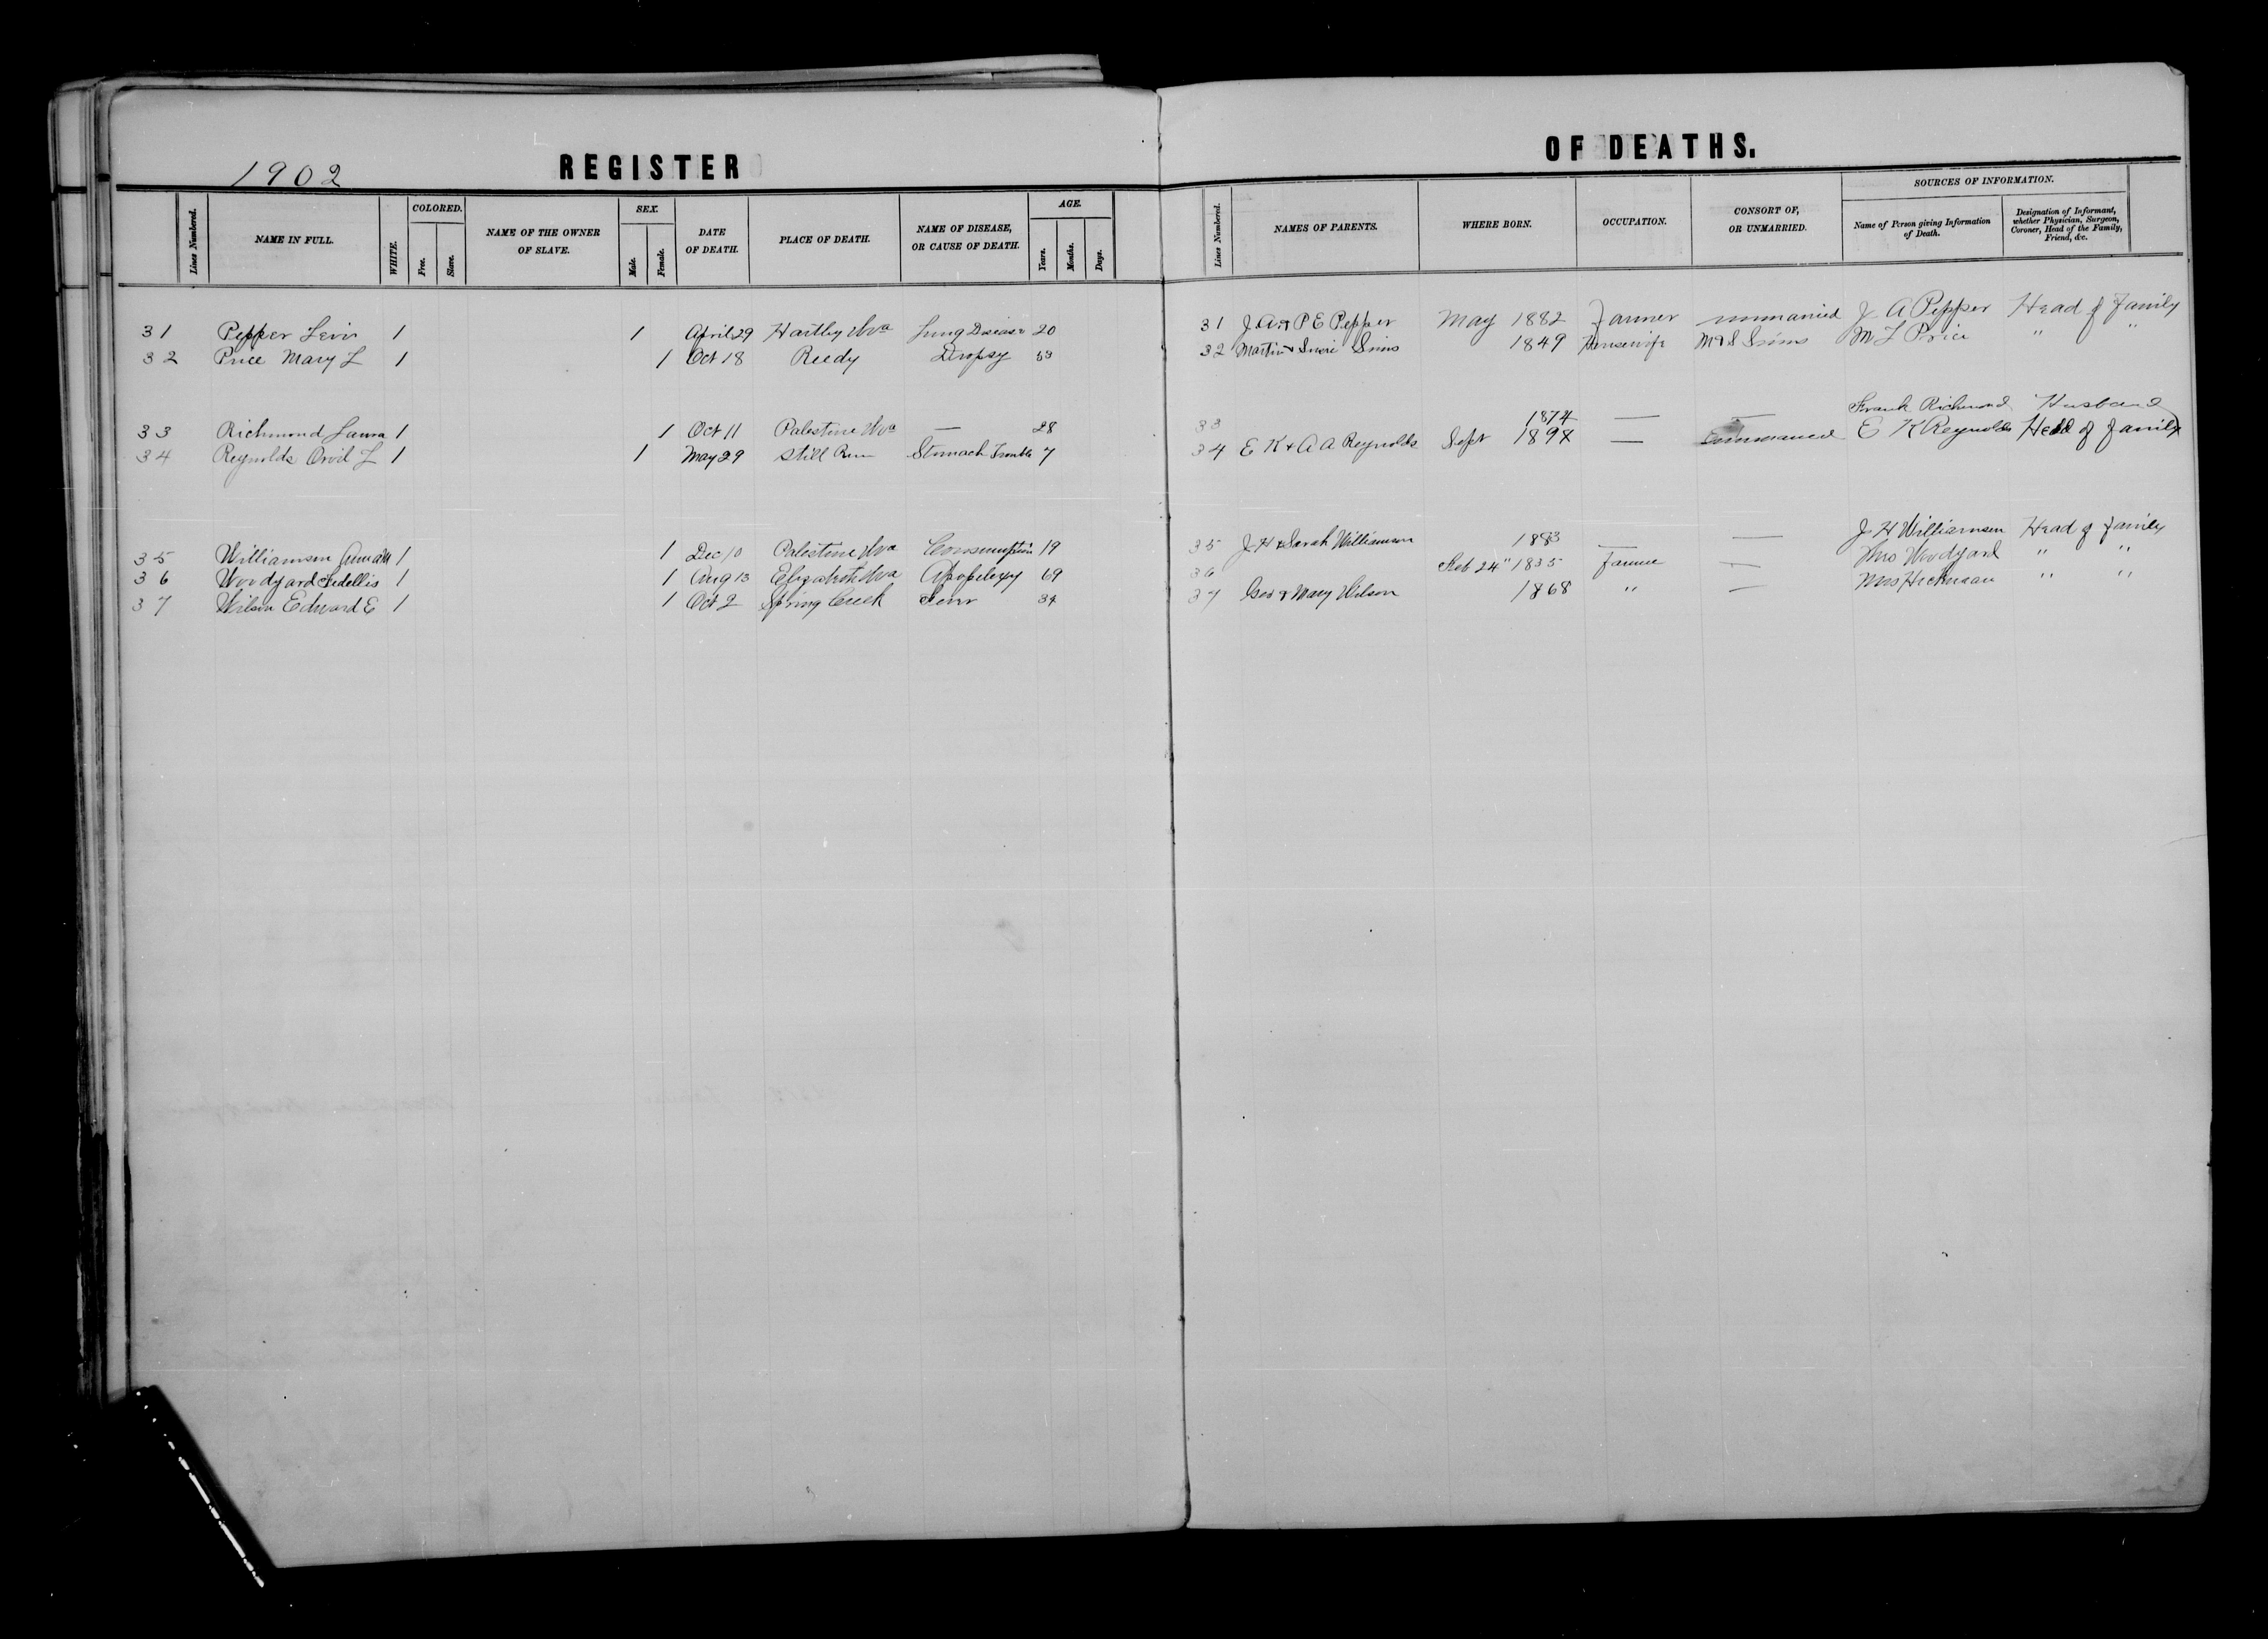 1902 REGISTER OF DEATHS.
Lines Numbered. NAME IN FULL. WHITE. COLORED. Free. Slave. NAME OF THE OWNER OF SLAVE. SEX. Male. Female. DATE OF DEATH. PLACE OF DEATH. NAME OF DISEASE, OR CAUSE OF DEATH. AGE. Years. Months. Days.
Lines Numbered. NAMES OF PARENTS. WHERE BORN. OCCUPATION. CONSORT OF, OR UNMARRIED. SOURCES OF INFORMATION. Name of Person giving Information of Death. Designation of Informant, whether Physician, Surgeon, Coroner, Head of the Family, Friend, &c.
31 Pepper Levi 1 1 April 29 Hartley Wva Lung Disease 20 31 J. A. & P E Pepper May 1882 Farmer unmarried J. A Pepper Head of Family
32 Price Mary L 1 1 Oct 18 Reedy Dropsy 53 32 Martin & Sims 1849 Housewife M & S Sims M L Price " "
33 Richmond Laura 1 1 Oct 11 Palestine Wva — 28 33 1874 — — Frank Richmond Husband
34 Reynolds Orvil L 1 1 May 29 Still Run Stomach Trouble 7 34 E K & A A Reynolds Sept 1894 — E K Reynolds Head of Family
35 Williamson 1 1 Dec 10 Palestine Wva Consumption 19 35 J H & Sarah Williamson 1883 — — J H Williamson Head of Family
36 Woodyard Fedellis 1 1 Aug 13 Elizabeth Wva Apoplexy 69 36 Feb 24" 1835 Farmer — Woodyard " "
37 Wilson Edward E 1 1 Oct 2 Spring Creek 34 37 Geo & Mary Wilson 1868 " — Mrs Hickman " "